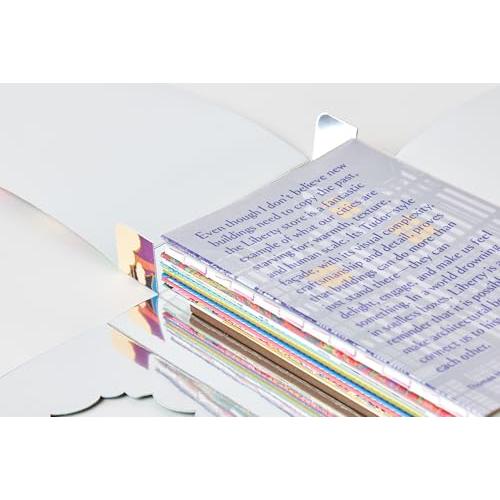 Even though I don't believe new
buildings need to copy the past,
the Liberty store is a fantastic
example of what our cities are
craving for: warmth, texture,
and human scale. Its Tudor-style
façade, with its visual complexity,
craftsmanship and detail, proves
that buildings can do more than
just stand there – they can
delight, engage, and make us feel
something. In a world drowning
in soulless boxes, Liberty is
reminder that it is po
make architectural
connect us to h
each other.